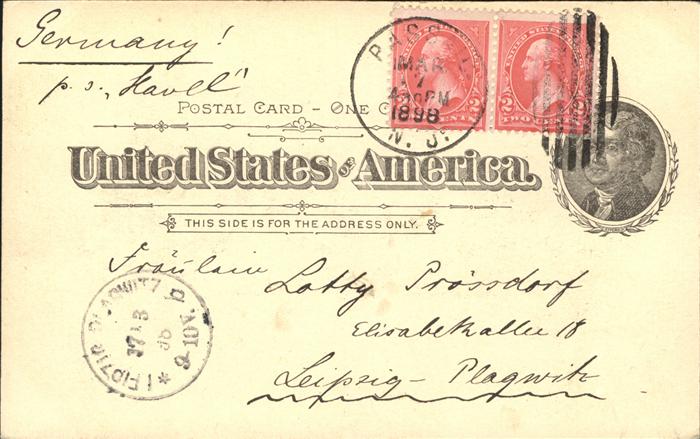 Germany!
p. s. „Havel"
POSTAL CARD – ONE C
United States of America.
THIS SIDE IS FOR THE ADDRESS ONLY.
MAR
7
PM
1898
N. J.
2 CENTS 2
2 TWO CENTS
Fräulein Lotty Prössdorf
Elisabethallee 18
Leipzig - Plagwitz
LEIPZIG-PLAGWITZ
17 3
98
9-10V.